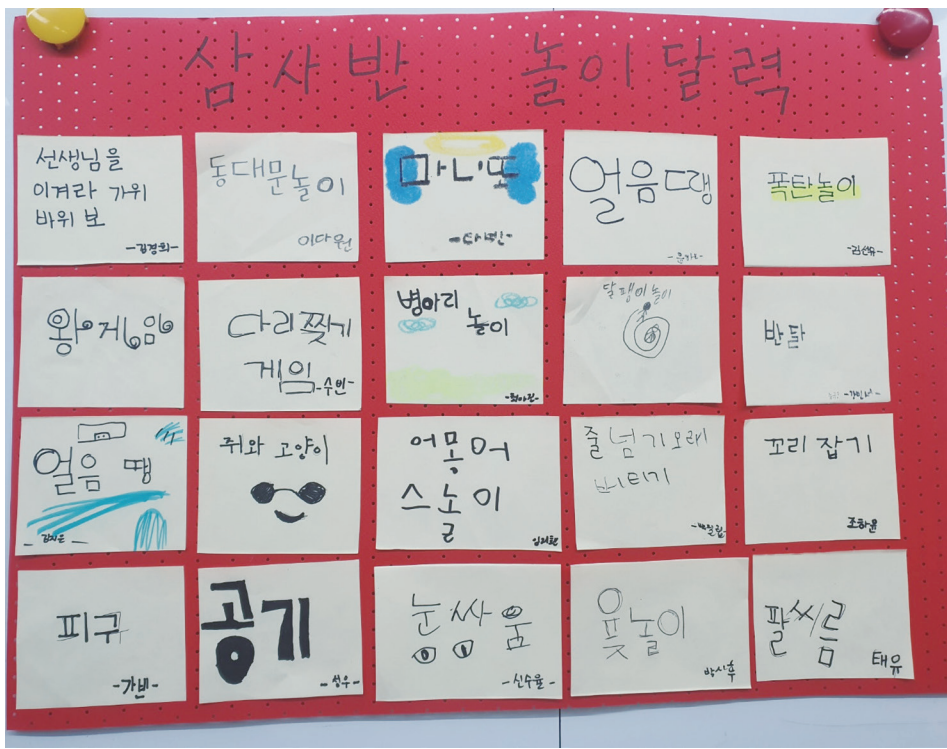 삼사반 놀이달력
선생님을
이겨라 가위
바위 보
-김경희-
동대문놀이
이다원
마니또
-다빈-
얼음땡
폭탄놀이
-김선유-
왕게임
다리찢기
게임
-수빈-
병아리
놀이
달팽이놀이
반달
얼음 땡
쥐와 고양이
줄넘기오래
버티기
꼬리 잡기
조하윤
피구
-가빈-
공기
-성우-
눈싸움
-신수율-
윷놀이
박시후
팔씨름
태유